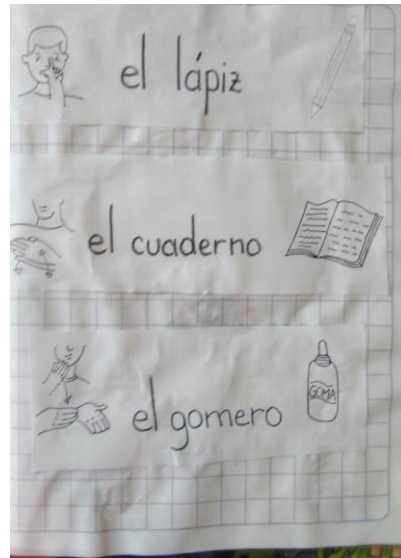 el lápiz
el cuaderno
el gomero
GOMA